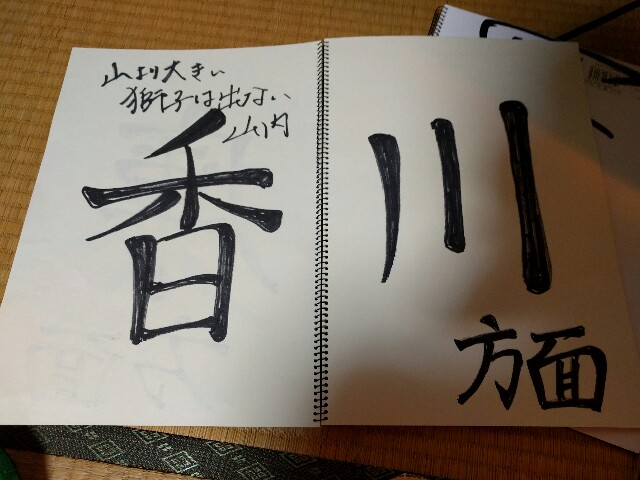 山より大きい
獅子は出ない
山内
香川
方面